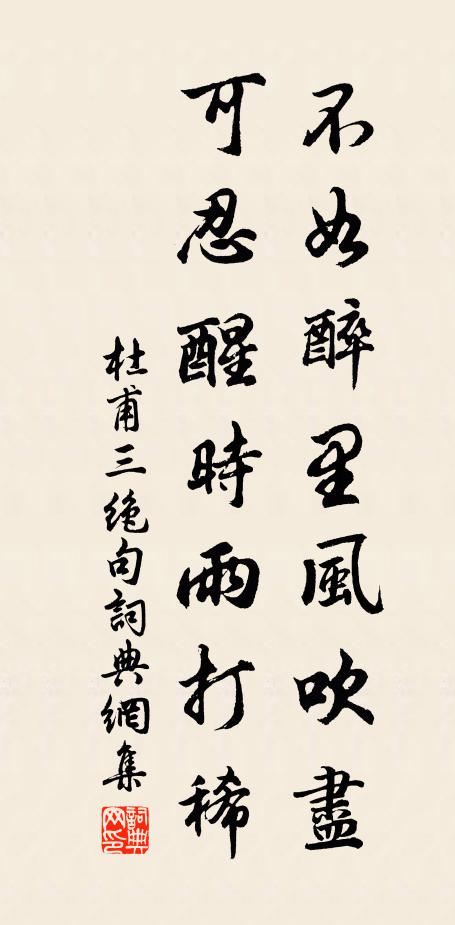 不如醉里風吹盡
可忍醒時雨打稀
杜甫三絶句詞典網集
詞典網印